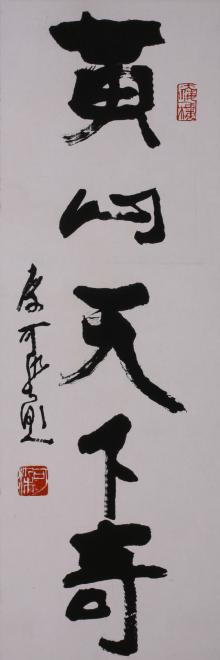 黄山天下奇
李可染題
可染